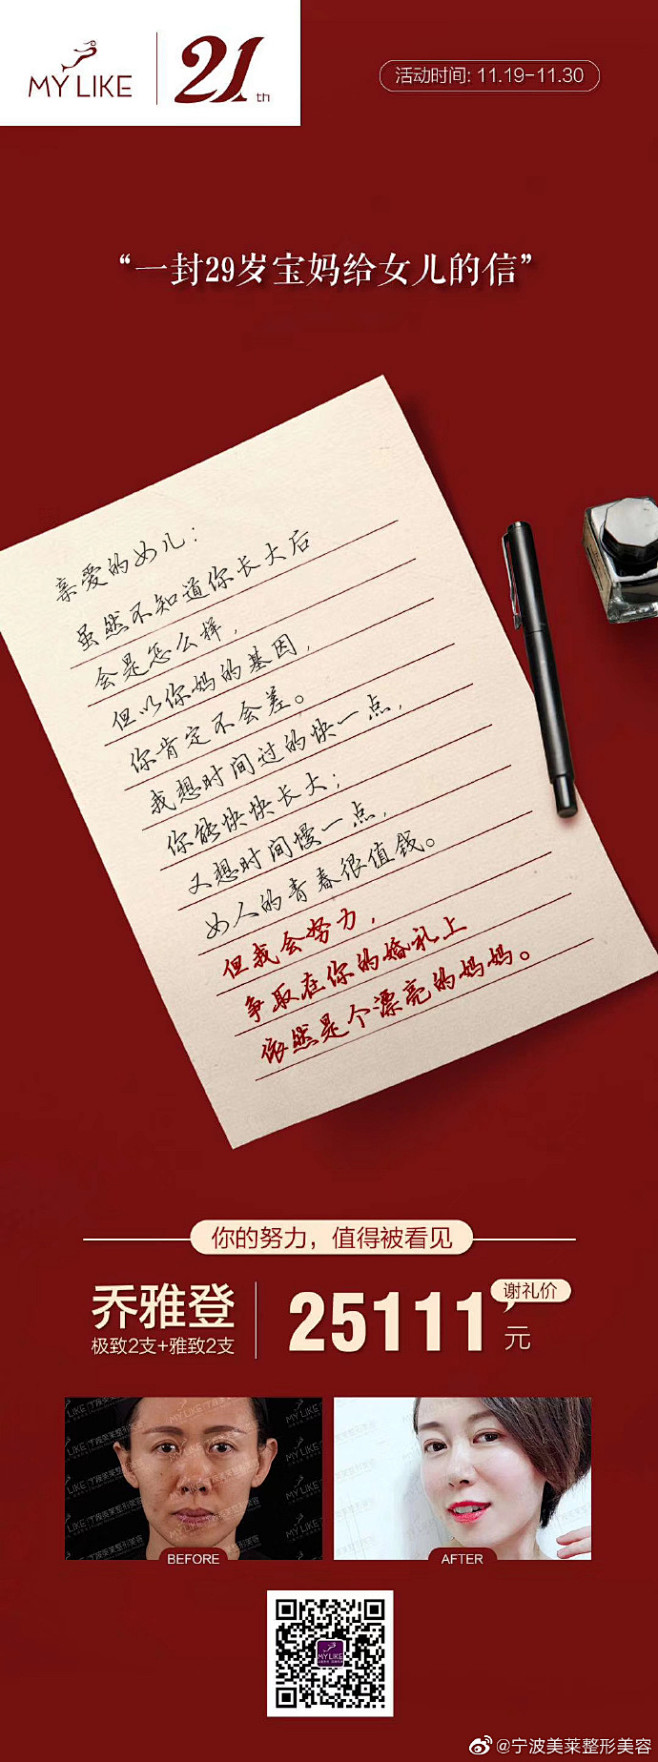 MY LIKE
21th
活动时间: 11.19-11.30
“一封29岁宝妈给女儿的信”
亲爱的女儿：
虽然不知道你长大后
会是怎么样，
但以你妈的基因，
你肯定不会差。
我想时间过的快一点，
你能快快长大；
又想时间慢一点，
女人的青春很值钱。
但我会努力，
争取在你的婚礼上
依然是个漂亮的妈妈。
你的努力，值得被看见
乔雅登
极致2支+雅致2支
25111元
谢礼价
BEFORE
AFTER
MY LIKE
@宁波美莱整形美容